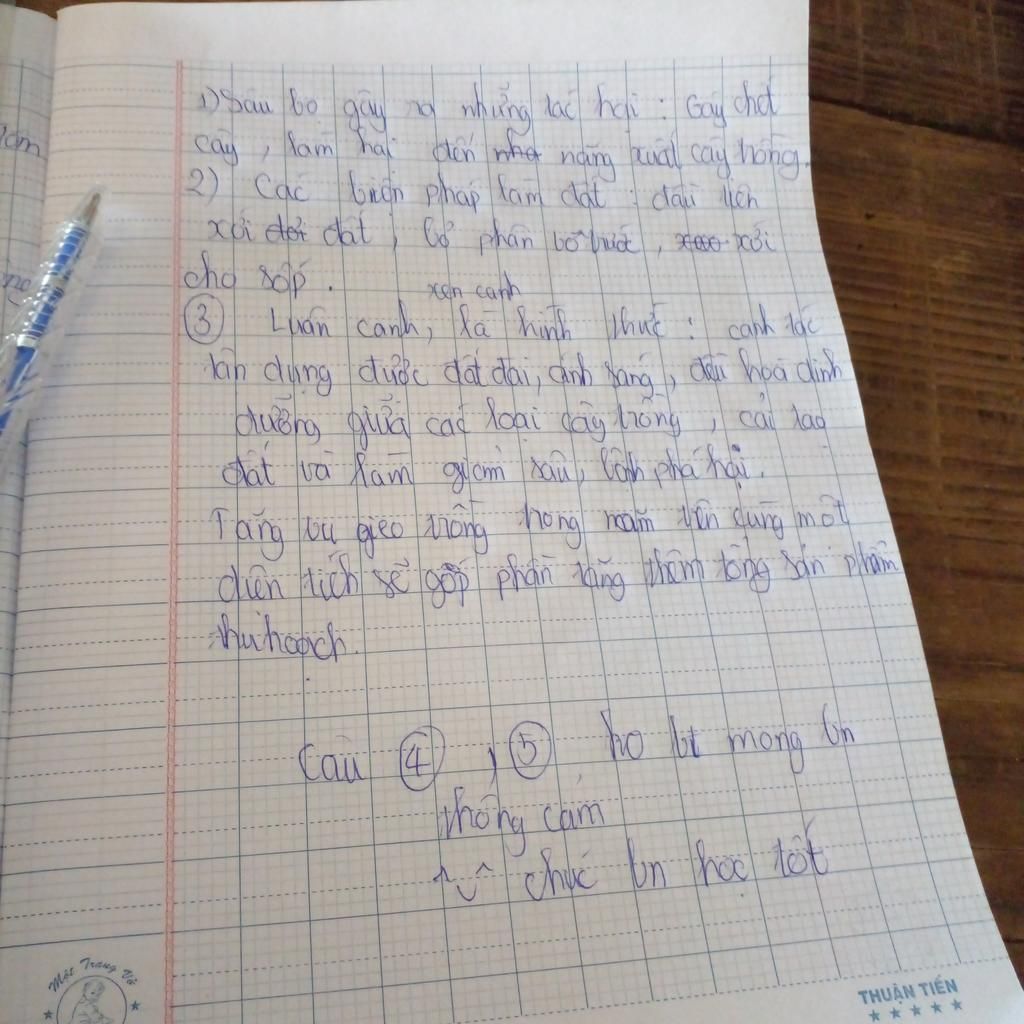 1) Sâu bọ gây ra những tác hại : Gây chết
cây, làm hại đến năng xuất cây trồng.
2) Các biện pháp làm đất : đầu tiên
xới đất, bỏ phân bò trước, xới
cho sốp.
xen canh
③ Luân canh, là hình thức : canh tác
tận dụng được đất đai, ánh sáng, điều hoà dinh
dưỡng giữa các loại cây trồng, cải tạo
đất và làm giảm sâu, bệnh phá hại.
Tăng vụ gieo trồng trong năm trên dụng một
diện tích sẽ góp phần tăng thêm tổng sản phẩm
thu hoạch.
Câu ④, ⑤ ko bt mong bn
thông cảm
^⌣^ chúc bn học tốt
Một Trang Vở
THUẬN TIẾN